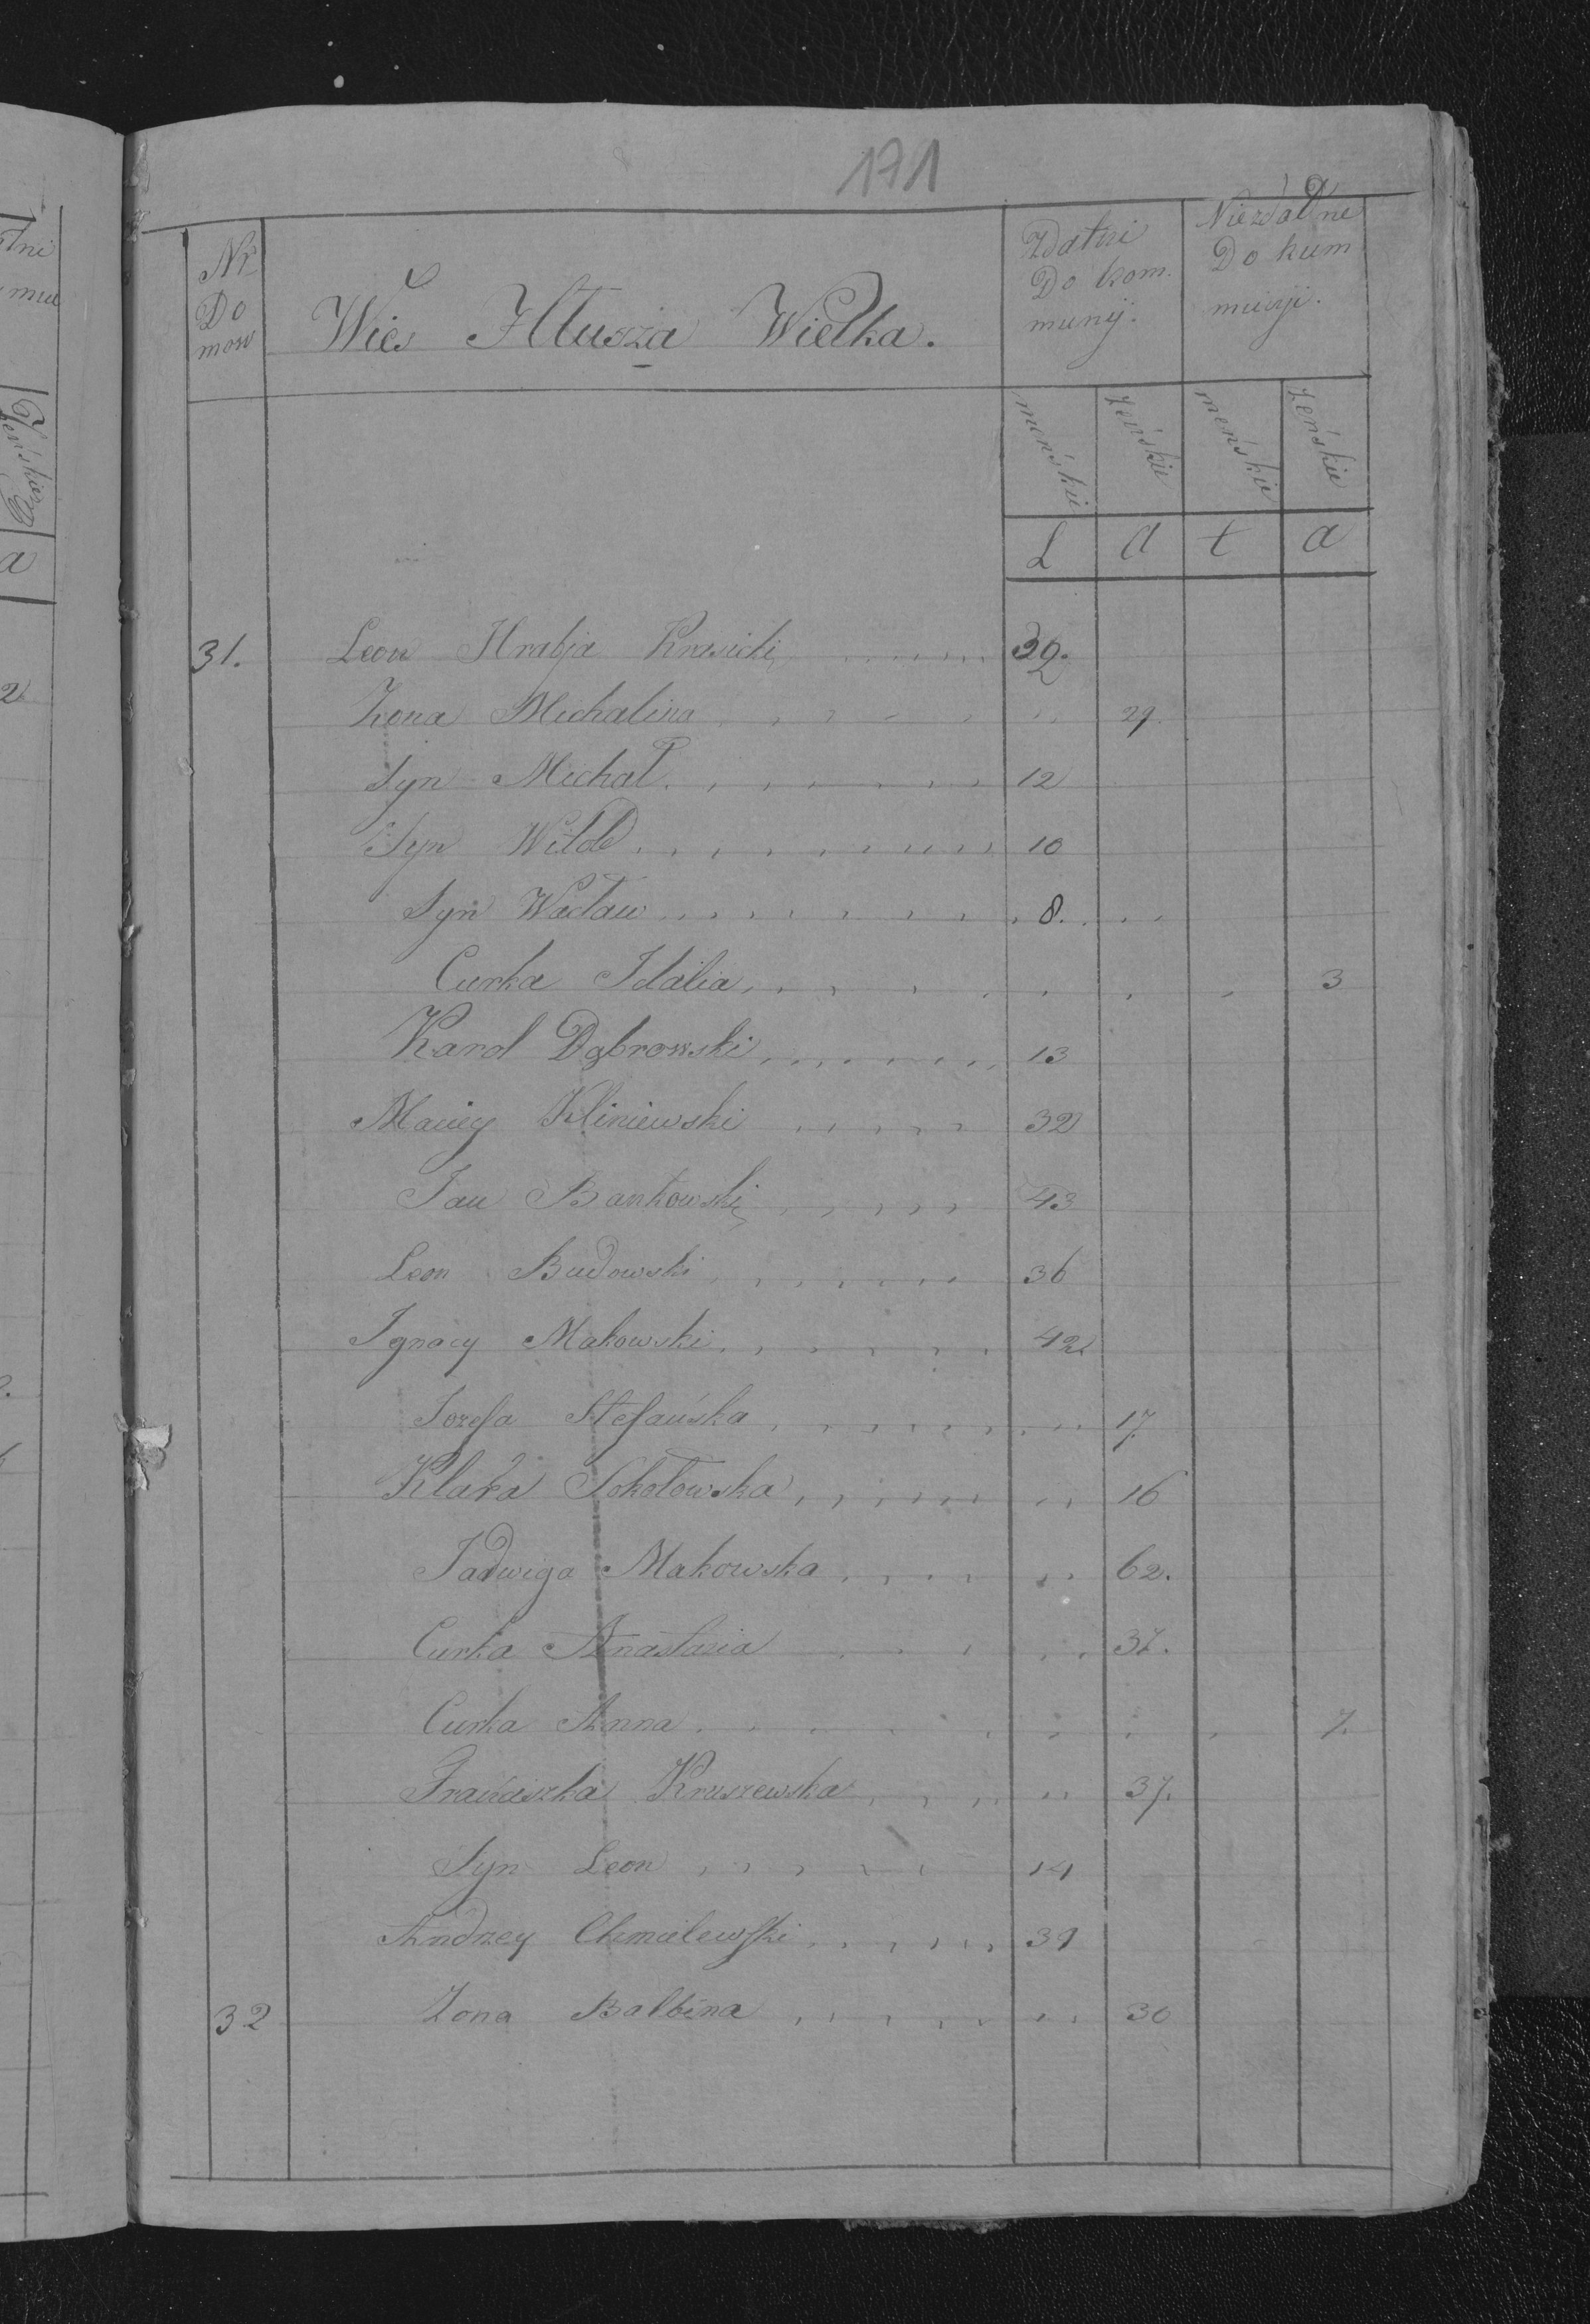 171
Nr Do mow
Wies Hłusza Wielka.
Zdatni Do kom. munij.
Niezdadne Do kum musji.
menskie żeńskie menskie żeńskie
L a t a
31. Leon Hrabja Krasicki 39.
Zona Michalina 29.
Syn Michał 12
Syn Witold 10
Syn Wacław 8.
Curka Idalia 3
Karol Dąbrowski 13
Maciey Kliniewski 32
Jan Bankowski 43
Leon Budowski 36
Ignacy Makowski 42
Jozefa Stefańska 17
Klara Sokołowska 16
Jadwiga Makowska 62.
Curka Anastazia 37.
Curka Anna 7.
Franciszka Kruszewska 37.
Syn Leon 14
Andrzey Chmielewski 39
32 Zona Balbina 30